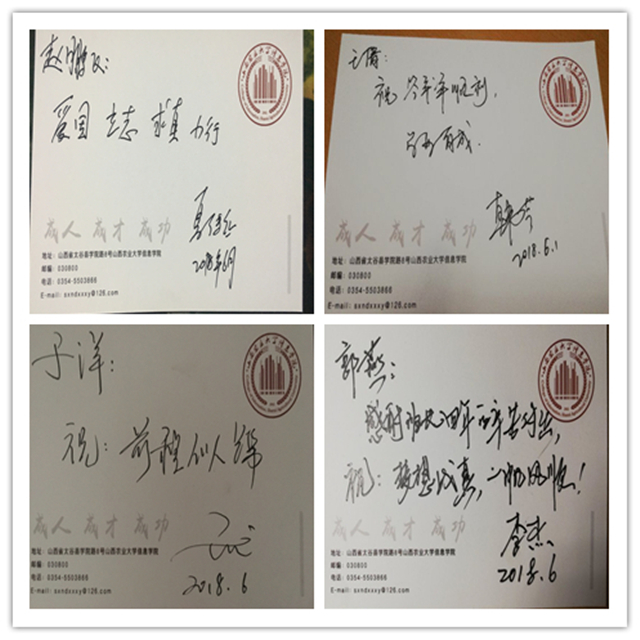 赵鹏飞：
爱国 立志 求真 力行
2018年6月
成人 成才 成功
地址：山西省太谷县学院路8号山西农业大学信息学院
邮编：030800
电话：0354-5503866
E-mail：sxndxxxy@126.com
祝
韩芳
2018.6.1
成人 成才 成功
地址：山西省太谷县学院路8号山西农业大学信息学院
邮编：030800
电话：0354-5503866
E-mail：sxndxxxy@126.com
子洋：
祝：前程似锦
2018.6
成人 成才 成功
地址：山西省太谷县学院路8号山西农业大学信息学院
邮编：030800
电话：0354-5503866
E-mail：sxndxxxy@126.com
郭燕：
感谢班长四年辛苦付出，
祝：梦想成真，一帆风顺！
李杰
2018.6
成人 成才 成功
地址：山西省太谷县学院路8号山西农业大学信息学院
邮编：030800
电话：0354-5503866
E-mail：sxndxxxy@126.com